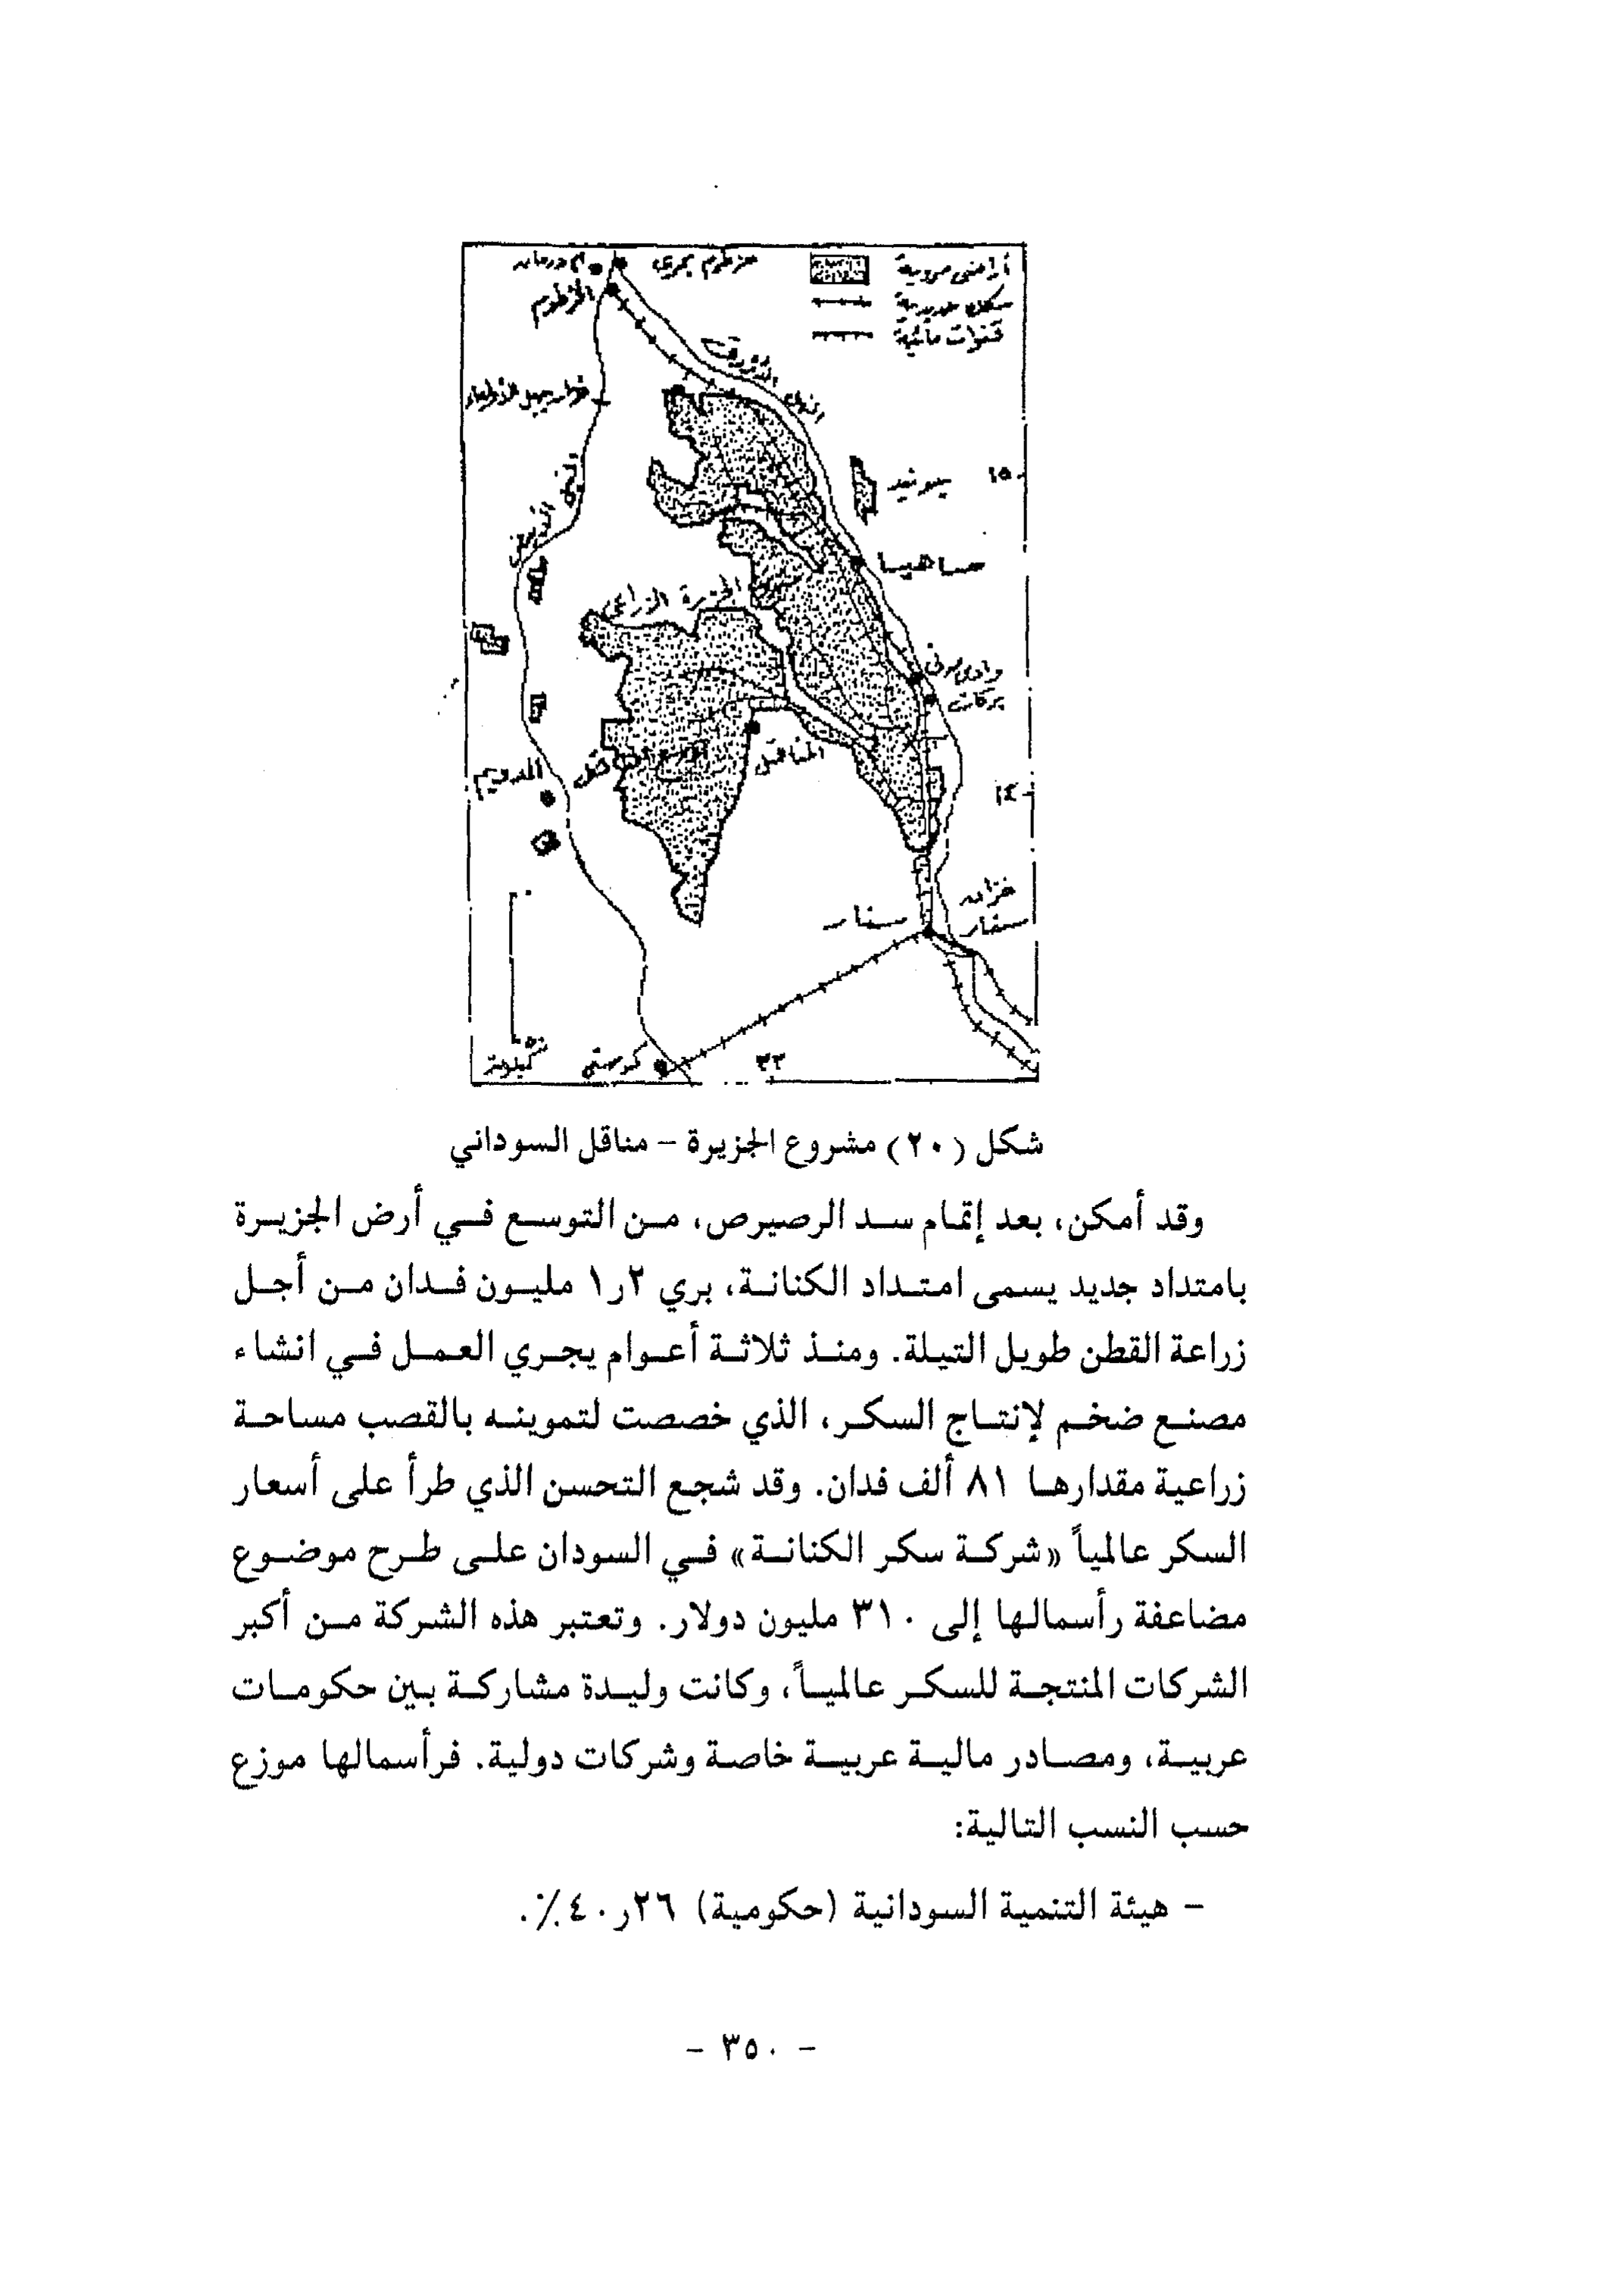 أم درمان
خرطوم بحري
أراضي مروية
الخرطوم
سكك حديدية
قنوات مائية
النيل
١٥
حساهيسا
الجزيرة الزراعي
بركات
المناقل
١٤
خزان
سنار
سنار
كوستي
٣٣
شكل (٢٠) مشروع الجزيرة – مناقل السوداني
وقد أمكن، بعد إتمام سد الرصيرص، من التوسع في أرض الجزيرة
بامتداد جديد يسمى امتداد الكنانة، بري ٢ر١ مليون فدان من أجل
زراعة القطن طويل التيلة. ومنذ ثلاثة أعوام يجري العمل في انشاء
مصنع ضخم لإنتاج السكر، الذي خصصت لتموينه بالقصب مساحة
زراعية مقدارها ٨١ ألف فدان. وقد شجع التحسن الذي طرأ على أسعار
السكر عالمياً «شركة سكر الكنانة» في السودان على طرح موضوع
مضاعفة رأسمالها إلى ٣١٠ مليون دولار. وتعتبر هذه الشركة من أكبر
الشركات المنتجة للسكر عالمياً، وكانت وليدة مشاركة بين حكومات
عربية، ومصادر مالية عربية خاصة وشركات دولية. فرأسمالها موزع
حسب النسب التالية:
– هيئة التنمية السودانية (حكومية) ٢٦ر٤٠٪.
– ٣٥٠ –